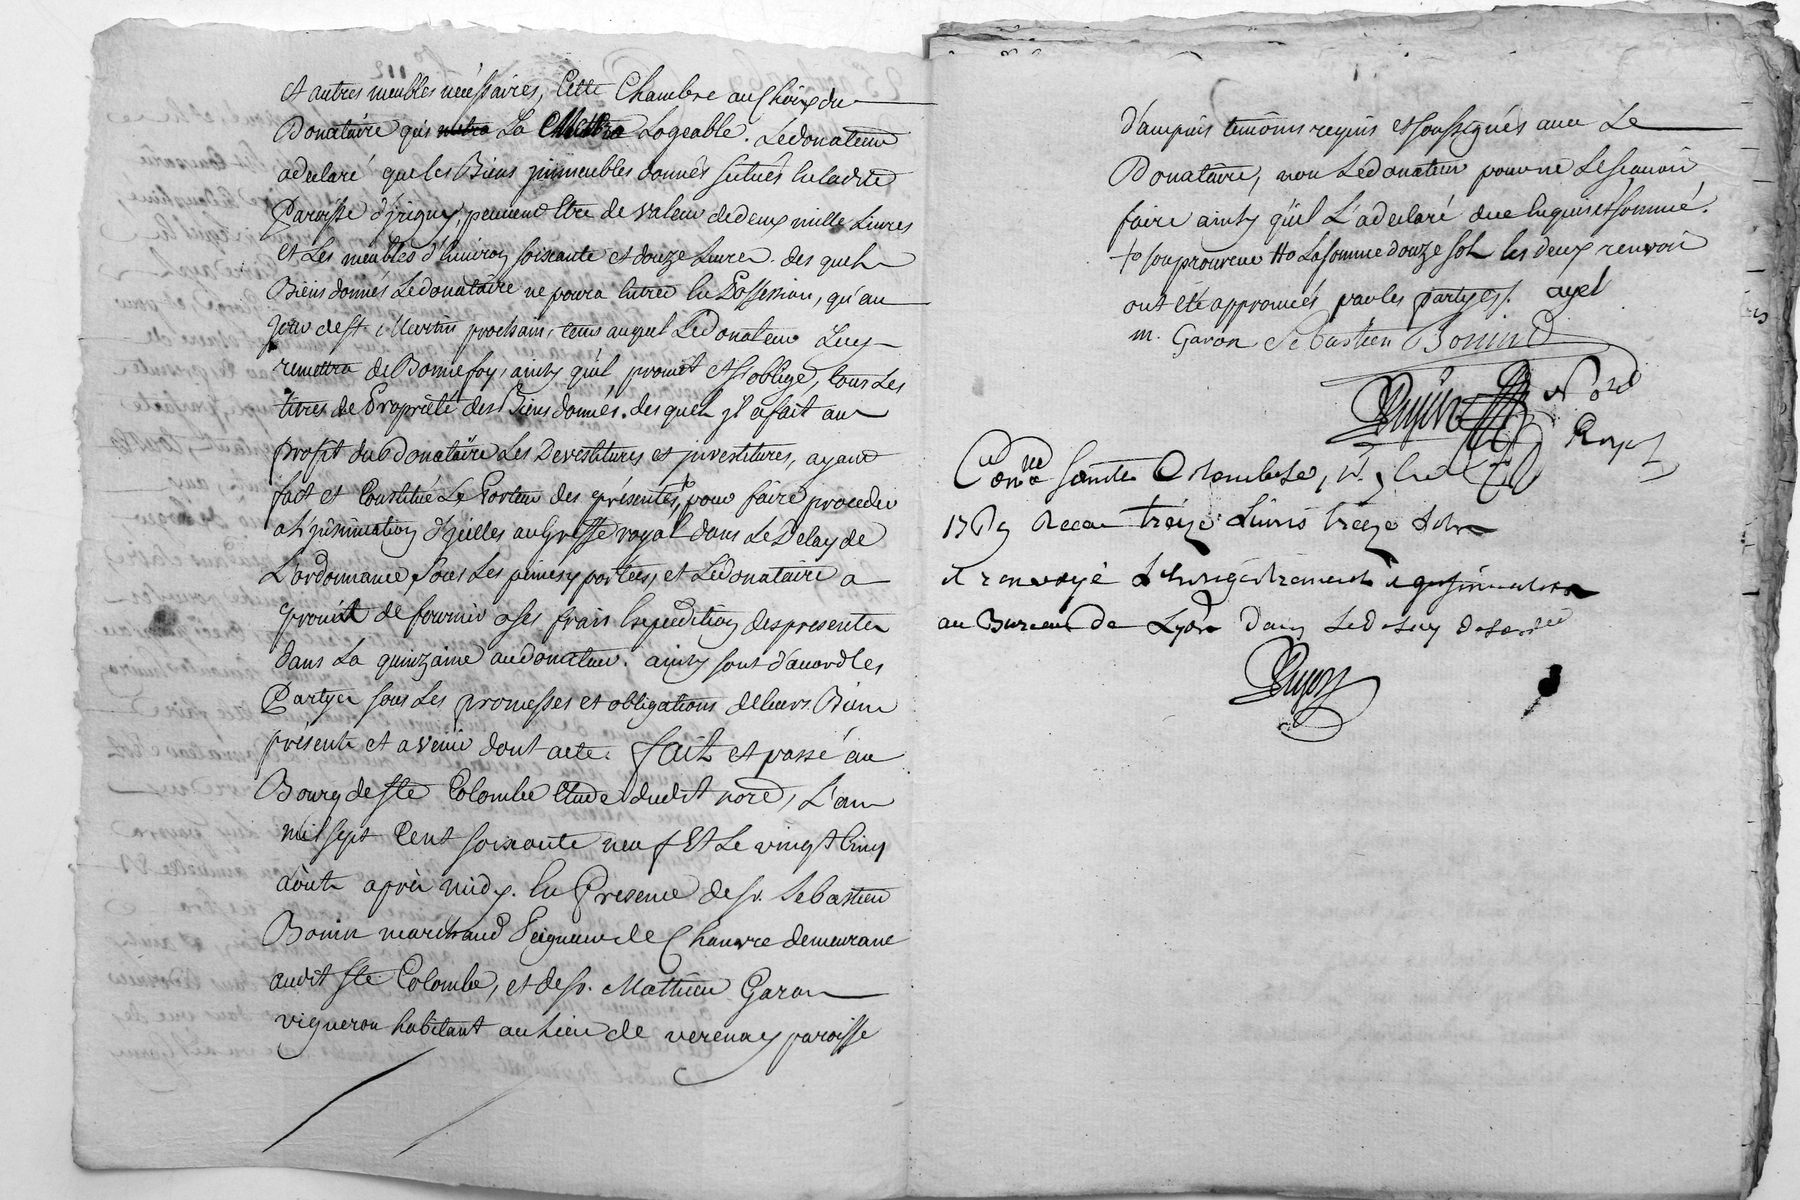 et autres meubles nécéssaires, Cette Chambre au Choix du
Donataire qui mettra La Mettra Logeable. Le donateur
a declaré que les Biens jmmeubles donnés scitués en ladite
Paroisse d'jrigny, peuvent Etre de valeur de deux mille Livres
et Les meubles d'Environ soixante et douze Livres. des quels
Biens donnés Le donataire ne poura Entrer En Possession, qu'au
Jour de st. Martin prochain, tems auquel Le donateur Luy
remettra de Bonne foy, ainsy qu'il promet et s'oblige, tous Les
titres de Proprieté des Biens donnés. des quels jl a fait au
profit du donataire Les Devestitures et jnvestitures, ayant
fait et Constitué Le Porteur des présentes, pour faire proceder
a L'jnsinuation d'jcelles au Greffe royal dans Le Delay de
L'ordonnance sous Les peines y portées, et Le donataire a
promit de fournir a ses frais Expedition des presentes
dans La quinzaine au donateur. ainsy sont d'accord les
Partyes sous Les promesses et obligations de leurs Biens
présents et a venir dont acte. fait et passé au
Bourg de ste Colombe Etude dudit nore, L'an
mil sept Cent soixante neuf Et Le vingt Cinq
août après midy. En Presence de sr. Sebastien
Bonin marchand Peigneur de Chanvre demeurant
audit ste Colombe, et de sr. Mathieu Garon
vigneron habitant au Lieu de verenay paroisse
d'ampuis temoins requis et soussignés avec Le
Donataire, non Le donateur pour ne Le scavoir
faire ainsy qu'il L'a declaré de ce Enquis et sommé.
La somme douze sols les deux renvoir
ont été approuvés par les partyes.
m. Garon Sebastien Bonin
Con̄lle a Sainte Colombe, le
1769 Recu treize Livres treize sols
et renvoyé L'Enregistrement et jnsinuation
au Bureau de Lyon dans Le delay